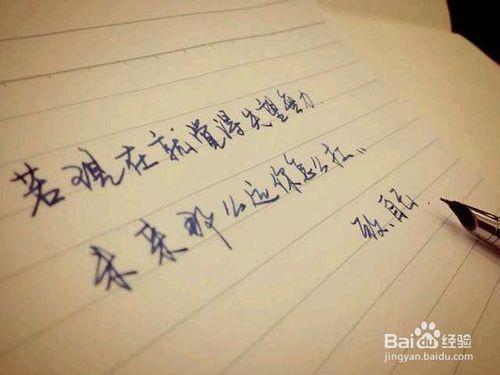 若现在就觉得失望无力
未来那么远你怎么扛..
致.自己.
Bai 经验
jingyan.baidu.com